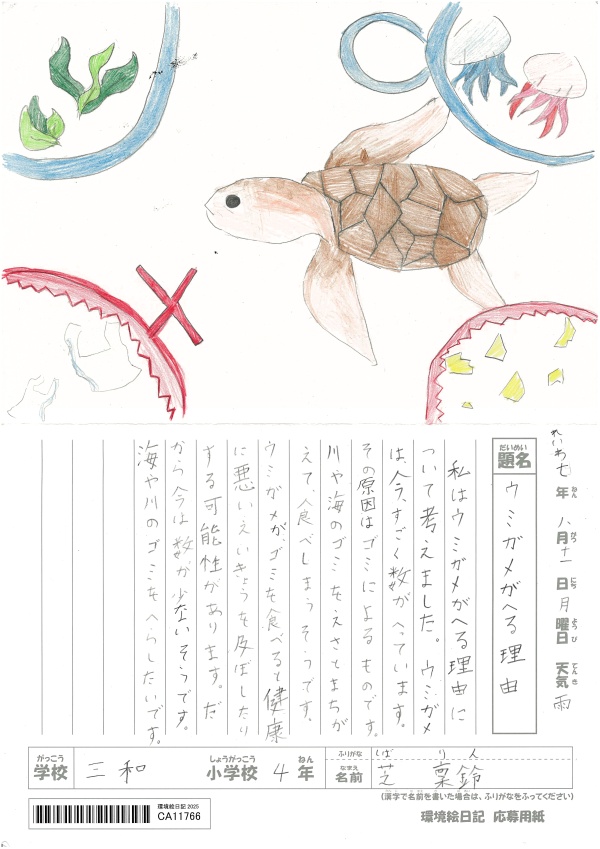 れいわ七年 八月十一日月曜日 天気雨
ねん がつ にち ようび てんき
だいめい
題名 ウミガメがへる理由
私はウミガメがへる理由に
ついて考えました。ウミガメ
は、今、すごく数がへっています。
その原因はゴミによるものです。
川や海のゴミをえさとまちが
えて、食べしまうそうです。
ウミガメが、ゴミを食べると健康
に悪いえいきょうを及ぼしたり
する可能性があります。だ
から今は数が少ないそうです。
海や川のゴミをへらしたいです。
がっこう しょうがっこう ねん ふりがな しば り
学校 三和 小学校 4年 なまえ 名前 芝 稟鈴
(漢字で名前を書いた場合は、ふりがなをふってください)
環境絵日記 2025
CA11766
環境絵日記 応募用紙